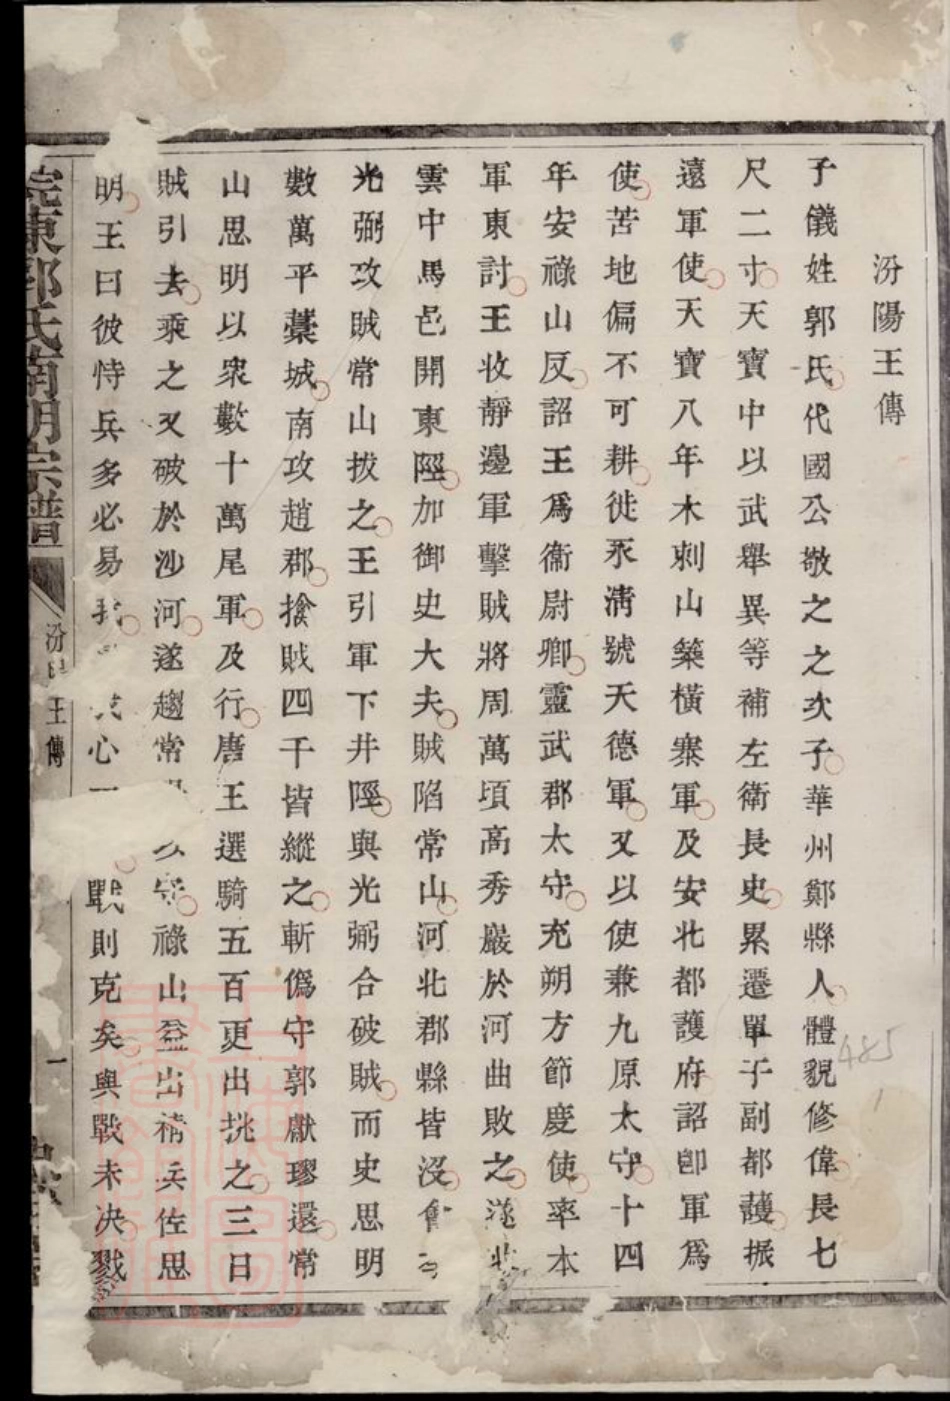 汾陽王傳
子儀姓郭氏代國公敬之之次子華州鄭縣人體貌修偉長七
尺二寸天寶中以武舉異等補左衛長史累遷單于副都護振
遠軍使天寶八年木剌山築橫寨軍及安北都護府詔卽軍爲
使苦地偏不可耕徙永淸號天德軍又以使兼九原太守十四
年安祿山反詔王爲衞尉卿靈武郡太守充朔方節慶使率本
軍東討王收靜邊軍擊賊將周萬頃高秀巖於河曲敗之遂北
雲中馬邑開東陘加御史大夫賊陷常山河北郡縣皆沒會
光弼攻賊常山拔之王引軍下井陘與光弼合破賊而史思明
數萬平藁城南攻趙郡擒賊四千皆縱之斬僞守郭獻璆還常
山思明以衆數十萬尾軍及行唐王選騎五百更出挑之三日
賊引去乘之又破於沙河遂趨常以守祿山益出精兵佐思
明王曰彼恃兵多必易我心戰則克矣與戰未決戮
皖東郭氏南明宗譜
汾陽王傳
一
485